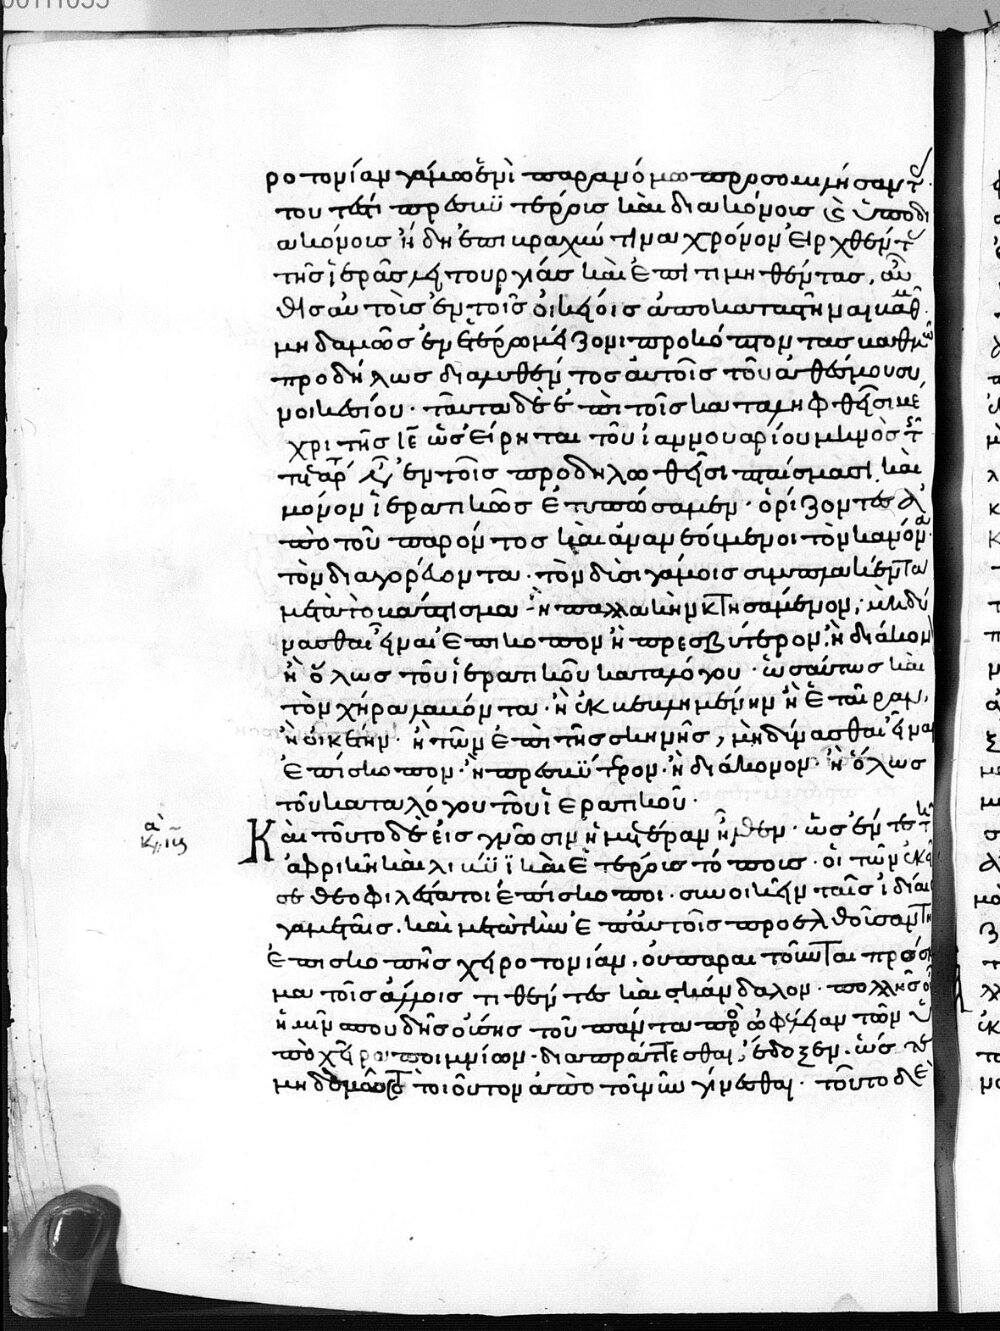 ροτονίαν γάμω ἑνὶ παρανόμω προσομιλήσαντ
τουτέστι πρεσβϋτέροις καὶ διακόνοις κ ὑποδι
ακόνοις ἤδη ἐπι βραχύν τινα χρόνον εἰρχθέντ
τῆς ἱερᾶς λειτουργίας καὶ ἐπιτιμηθέντας, αὖ
θις αὐτοῖς ἐν τοῖς οἰκείοις ἀποκαταστῆναι βαθ
μηδαμῶς ἐν ἑτέρω μείζονι προκόπτοντας βαθμῶ
προδήλως διαλυθέντος αὐτοῖς τοῦ ἀθέσμου συ
νοικεσίου· ταῦτα δὲ ἐπὶ τοῖς καταληφθεῖσι μέ
χρι τῆς ιε ὡς εἴρηται τοῦ ἰαννουαρίου μηνὸς τ
ἐν τοῖς προδηλωθεῖσι πταίσμασι, καὶ
μόνον ἱερατικῶς ἐτυπώσαμεν· ὁρίζοντες ἀ
πὸ τοῦ παρόντος καὶ ἀνανεούμενοι τὸν κανόνα
τὸν διαγορεύοντα· τὸν δυσὶ γάμοις συμπλακέντα
μετὰ τὸ βάπτισμα ἢ παλλακὴν κτησάμενον, μὴ δύ
νασθαι εἶναι ἐπίσκοπον ἢ πρεσβύτερον, ἢ διάκον
ἢ ὅλως τοῦ ἱερατικοῦ καταλόγου· ὡσαύτως καὶ
τὸν χήραν λαβόντα· ἢ ἐκβεβλημένην ἢ ἑταίραν,
ἢ οἰκέτην· ἢ τῶν ἐπὶ τῆς σκηνῆς, μὴ δύνασθαι εἶναι
ἐπίσκοπον· ἢ πρεσβϋτερον· ἢ διάκονον· ἢ ὅλως
τοῦ καταλόγου τοῦ ἱερατικοῦ·
Καὶ τοῦτο δὲ εἰς γνῶσιν ἡμετέραν ἦλθεν· ὡς ἔν τε τ
ἀφρικῆ καὶ λιβϋϊ καὶ ἑτέροις τόποις· οἱ τῶν ἐκεῖ
σε θεοφιλέστατοι ἐπίσκοποι· συνοικεῖν ταῖς ἰδίαι
γαμεταῖς. καὶ μετὰ τὴν ἐπ' αὐτοῖς προελθοῦσαν τῆς
ἐπισκοπῆς χειροτονίαν, οὐ παραιτοῦνται πρόσκ
μα τοῖς ἄλλοις τιθέντες καὶ σκάνδαλον· πολλῆς οὖ
ἡμῖν σπουδῆς οὔσης τοῦ πάντα πρὸ ὠφέλειαν τῶν ὑ
πὸ χεῖρα ποιμνίων· διαπράττεσθαι, ἔδοξεν· ὥστε
μηδαμῶς τοιοῦτον ἀπὸ τοῦ νῦν γίνεσθαι· τοῦτο δὲ